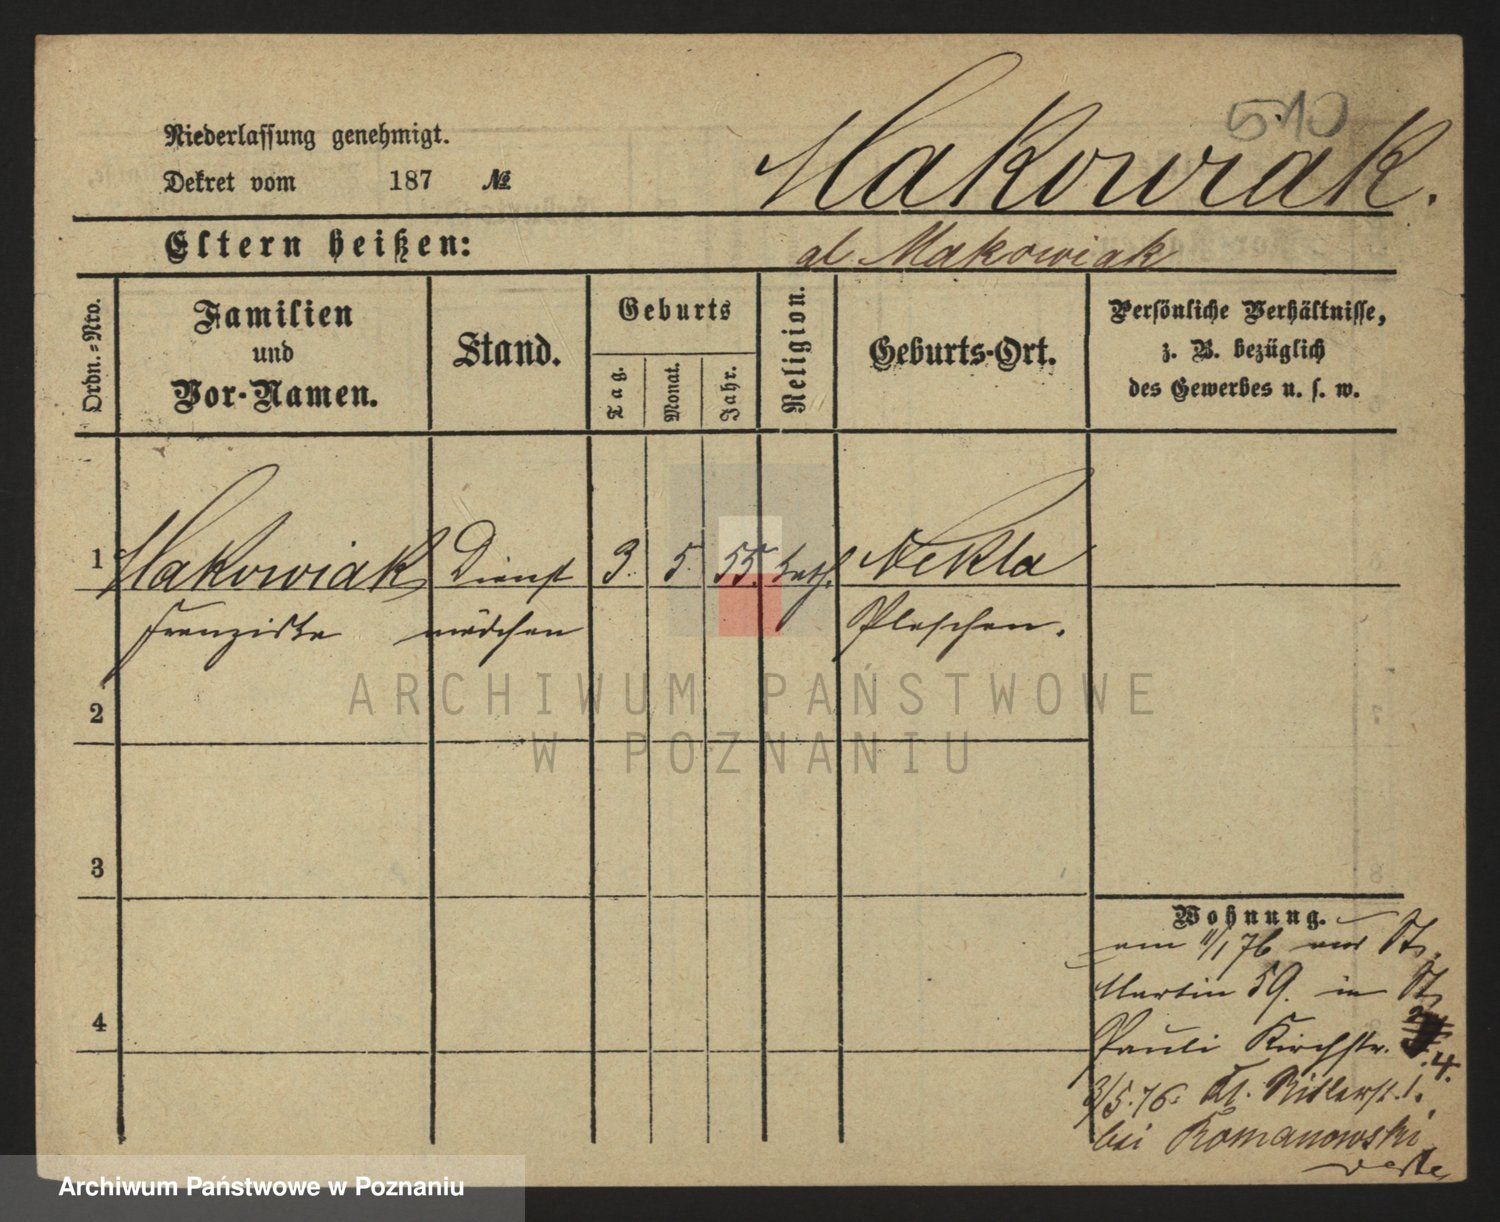 510
Niederlassung genehmigt.
Dekret vom 187 №
Makowiak.
Eltern heißen:
al Makowiak
Ordn.=Nro.
Familien
und
Vor-Namen.
Stand.
Geburts
Tag.
Monat.
Jahr.
Religion.
Geburts-Ort.
Persönliche Verhältnisse,
z. B. bezüglich
des Gewerbes u. s. w.
1 Makowiak Dienst 3. 5. 55. kath. Nekla
Franziska mädchen Pleschen.
2
3
4
Wohnung.
am 11/1 76 aus St.
Martin 59. in St
Pauli Kirchstr. 4.
3/5.76. Kl. Ritterst. 1.
bei Romanowski
ARCHIWUM PAŃSTWOWE
W POZNANIU
Archiwum Państwowe w Poznaniu